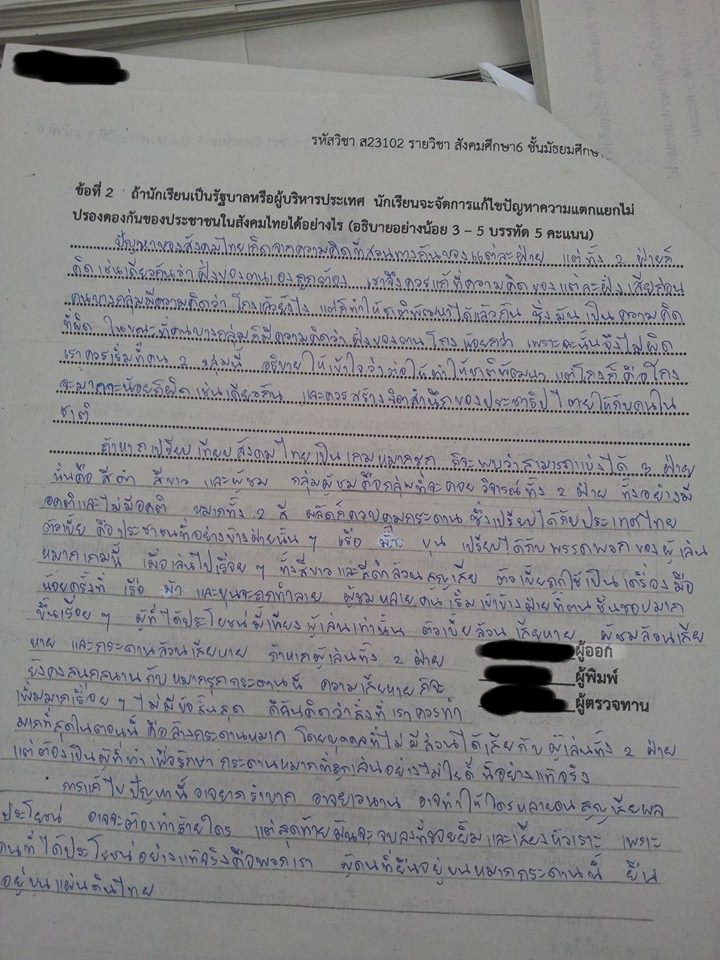 รหัสวิชา ส23102 รายวิชา สังคมศึกษา6 ชั้นมัธยมศึกษา
ข้อที่ 2 ถ้านักเรียนเป็นรัฐบาลหรือผู้บริหารประเทศ นักเรียนจะจัดการแก้ไขปัญหาความแตกแยกไม่
ปรองดองกันของประชาชนในสังคมไทยได้อย่างไร (อธิบายอย่างน้อย 3 – 5 บรรทัด 5 คะแนน)
ปัญหาของสังคมไทยเกิดจากความคิดที่สวนทางกันของแต่ละฝ่าย แต่ทั้ง 2 ฝ่ายก็
คิดเช่นเดียวกันว่าฝั่งของตนเองถูกต้อง เราจึงควรแก้ที่ความคิดของแต่ละฝั่งเสียก่อน
คนบางกลุ่มมีความคิดว่าโกงแล้วยังไง แต่ก็ทำให้ชาติพัฒนาได้แล้วกัน ซึ่งมันเป็นความคิด
ที่ผิด ในขณะที่คนบางกลุ่มก็มีความคิดว่าฝั่งของตนโกงน้อยกว่า เพราะฉะนั้นจึงไม่ผิด
เราควรเริ่มที่คน 2 กลุ่มนี้ อธิบายให้เข้าใจว่าต่อให้ทำให้ชาติพัฒนา แต่โกงก็คือโกง
จะมากจะน้อยก็ผิดเช่นเดียวกัน และควรสร้างจิตสำนึกของประชาธิปไตยให้กับคนใน
ชาติ
ถ้าหากเปรียบเทียบสังคมไทยเป็นเกมหมากรุก ก็จะพบว่าสามารถแบ่งได้ 3 ฝ่าย
นั่นคือ สีดำ สีขาว และผู้ชม กลุ่มผู้ชมคือกลุ่มที่จะคอยวิจารณ์ทั้ง 2 ฝ่าย ทั้งอย่างมี
อคติและไม่มีอคติ หมากทั้ง 2 สี ผลัดกันควบคุมกระดาน ซึ่งเปรียบได้กับประเทศไทย
ตัวเบี้ย คือประชาชนที่อย่างข้างฝ่ายนั้น ๆ เรือ ม้า ขุน เปรียบได้กับพรรคพวกของผู้เล่น
หมากเกมนี้ เมื่อเล่นไปเรื่อย ๆ ทั้งสีขาวและสีดำล้วนสูญเสีย ตัวเบี้ยถูกใช้เป็นเครื่องมือ
น้อยครั้งที่ เรือ ม้า และขุนจะถูกทำลาย ผู้ชมหลายคนเริ่มเข้าข้างฝ่ายที่ตนชื่นชอบมาก
ขึ้นเรื่อย ๆ ผู้ที่ได้ประโยชน์มีเพียงผู้เล่นเท่านั้น ตัวเบี้ยล้วนเสียหาย ผู้ชมล้วนเสีย
หาย และกระดานล้วนเสียหาย ถ้าหากผู้เล่นทั้ง 2 ฝ่าย
ผู้ออก
ยังคงสนุกสนานกับหมากรุกกระดานนี้ ความเสียหายก็จะ
ผู้พิมพ์
เพิ่มมากเรื่อย ๆ ไม่มีข้อสิ้นสุด ดิฉันคิดว่าสิ่งที่เราควรทำ
ผู้ตรวจทาน
มากที่สุดในตอนนี้ คือล้างกระดานหมาก โดยบุคคลที่ไม่มีส่วนได้เสียกับผู้เล่นทั้ง 2 ฝ่าย
แต่ต้องเป็นผู้ที่ทำเพื่อรักษากระดานหมากที่ถูกเล่นอย่างไม่ใยดีนี้อย่างแท้จริง
การแก้ไขปัญหานี้อาจยากลำบาก อาจยาวนาน อาจทำให้ใครหลายคนสูญเสียผล
ประโยชน์ อาจจะต้องทำร้ายใคร แต่สุดท้ายมันจะจบลงที่รอยยิ้มและเสียงหัวเราะ เพราะ
คนที่ได้ประโยชน์อย่างแท้จริงคือพวกเรา ผู้คนที่ยืนอยู่บนหมากกระดานนี้ ยืน
อยู่บนแผ่นดินไทย